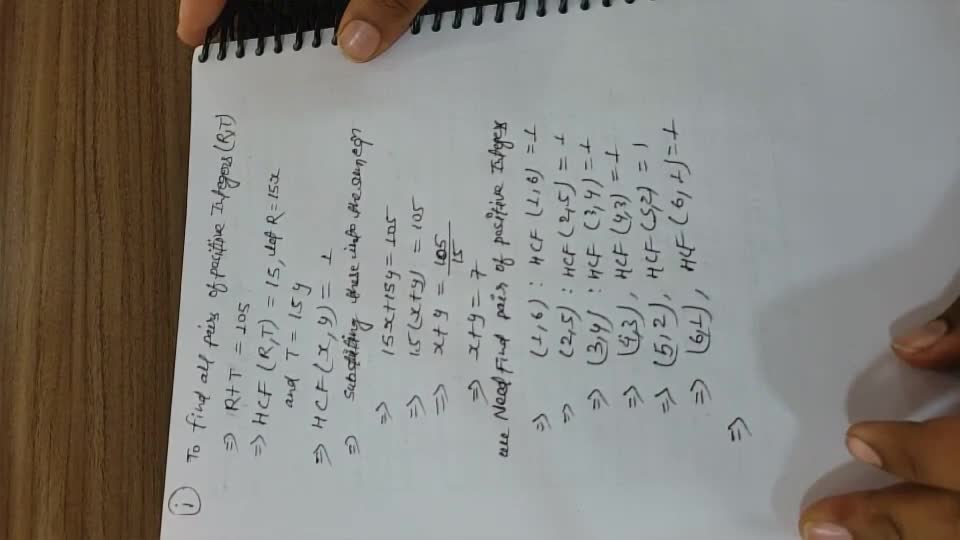 (i) To find all pairs of positive Integers (R,T)
⇒ R+T = 105
⇒ HCF (R,T) = 15, let R = 15x
and T = 15y
⇒ HCF (x, y) = 1
⇒ substituting these into the sum eqn
⇒ 15x + 15y = 105
⇒ 15(x+y) = 105
⇒ x + y = 105/15
⇒ x + y = 7
we Need Find pair of positive Integers
⇒ (1,6) : HCF (1,6) = 1
⇒ (2,5) : HCF (2,5) = 1
⇒ (3,4) : HCF (3,4) = 1
⇒ (4,3), HCF (4,3) = 1
⇒ (5,2), HCF (5,2) = 1
⇒ (6,1), HCF (6,1) = 1
⇒